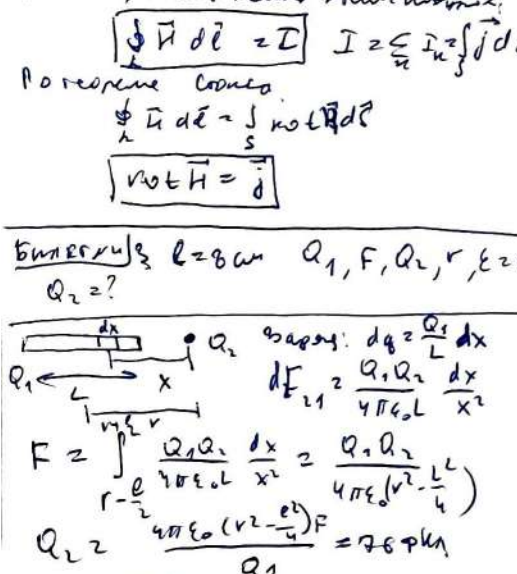 ∮_L H⃗ dl⃗ = I   I = Σ_n I_n = ∫_S j⃗ d
По теореме Стокса
∮_L H⃗ dl⃗ = ∫_S rot H⃗ dS⃗
rot H⃗ = j⃗
l = 8 см   Q₁, F, Q₂, r, ε =
Q₂ = ?
dx   Q₂   Заряд: dq = Q₁/L dx
Q₁   L   x   dF₂₁ = Q₁Q₂/(4πε₀L) dx/x²
r
F = ∫_{r-l/2} Q₁Q₂/(4πε₀L) dx/x² = Q₁Q₂/(4πε₀(r² - L²/4))
Q₂ = 4πε₀(r² - l²/4)F/Q₁ = 76